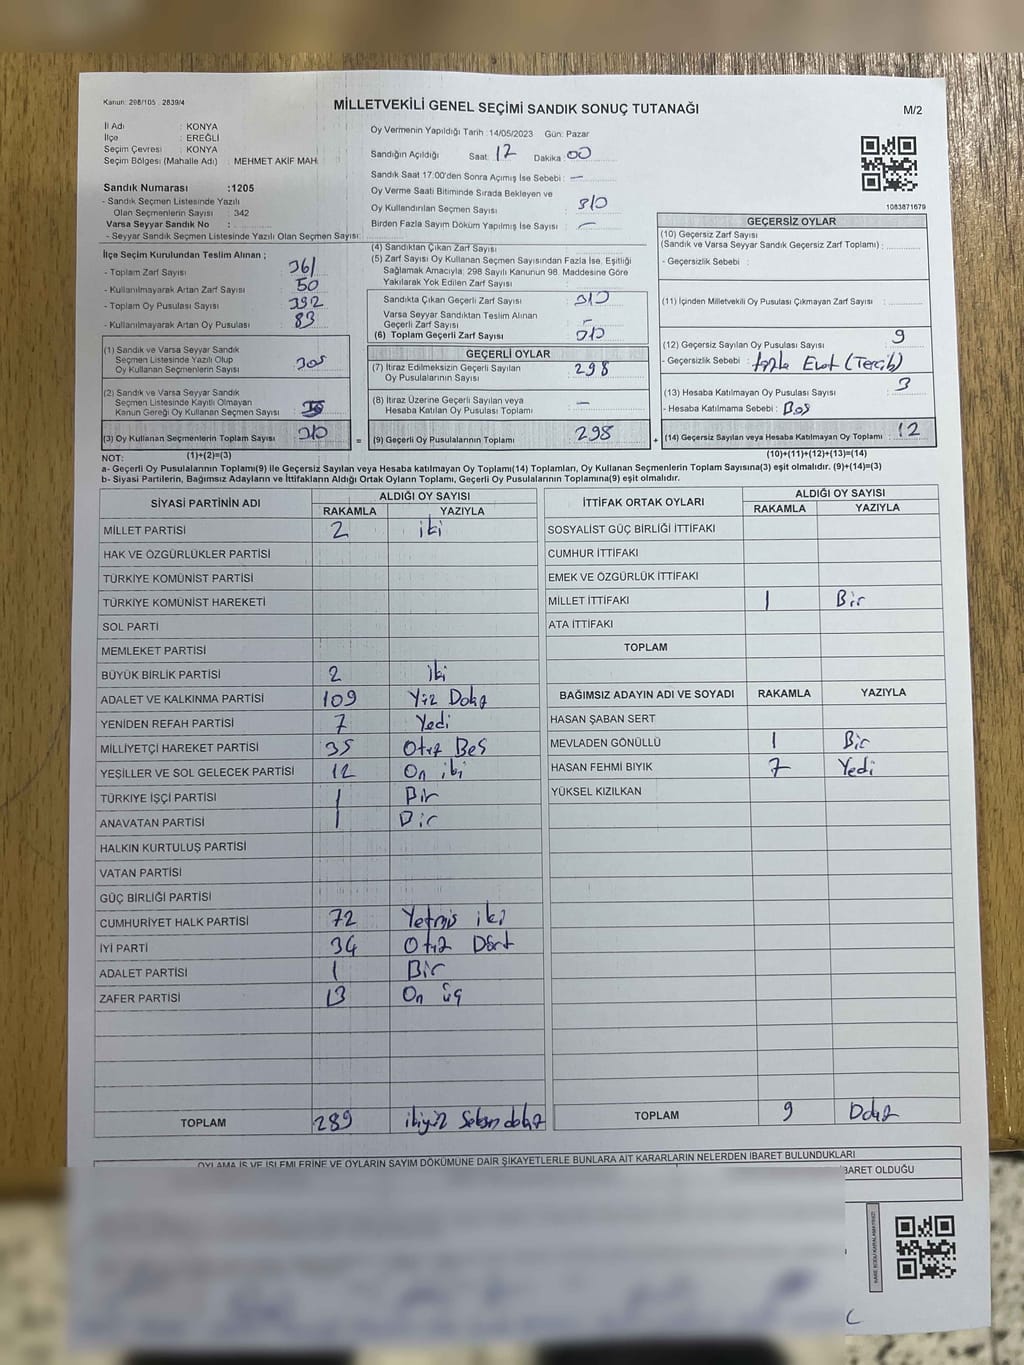 Kanun: 298/105 , 2839/4
MİLLETVEKİLİ GENEL SEÇİMİ SANDIK SONUÇ TUTANAĞI
M/2
İl Adı : KONYA
İlçe : EREĞLİ
Seçim Çevresi : KONYA
Seçim Bölgesi (Mahalle Adı) : MEHMET AKİF MAH
Sandık Numarası :1205
- Sandık Seçmen Listesinde Yazılı
Olan Seçmenlerin Sayısı : 342
Varsa Seyyar Sandık No :
- Seyyar Sandık Seçmen Listesinde Yazılı Olan Seçmen Sayısı:
Oy Vermenin Yapıldığı Tarih :14/05/2023 Gün: Pazar
Sandığın Açıldığı Saat: 17 Dakika: 00
Sandık Saat 17:00'den Sonra Açımış İse Sebebi : —
Oy Verme Saati Bitiminde Sırada Bekleyen ve
Oy Kullandırılan Seçmen Sayısı : 310
Birden Fazla Sayım Döküm Yapılmış İse Sayısı : —
1083871679
İlçe Seçim Kurulundan Teslim Alınan ;
- Toplam Zarf Sayısı : 361
- Kullanılmayarak Artan Zarf Sayısı : 50
- Toplam Oy Pusulası Sayısı : 392
- Kullanılmayarak Artan Oy Pusulası : 83
(1) Sandık ve Varsa Seyyar Sandık
Seçmen Listesinde Yazılı Olup
Oy Kullanan Seçmenlerin Sayısı : 305
(2) Sandık ve Varsa Seyyar Sandık
Seçmen Listesinde Kayıtlı Olmayan
Kanun Gereği Oy Kullanan Seçmen Sayısı :
(3) Oy Kullanan Seçmenlerin Toplam Sayısı : 310
(1)+(2)=(3)
(4) Sandıktan Çıkan Zarf Sayısı :
(5) Zarf Sayısı Oy Kullanan Seçmen Sayısından Fazla İse, Eşitliği
Sağlamak Amacıyla; 298 Sayılı Kanunun 98. Maddesine Göre
Yakılarak Yok Edilen Zarf Sayısı :
Sandıkta Çıkan Geçerli Zarf Sayısı : 310
Varsa Seyyar Sandıktan Teslim Alınan
Geçerli Zarf Sayısı : –
(6) Toplam Geçerli Zarf Sayısı : 310
GEÇERLİ OYLAR
(7) İtiraz Edilmeksizin Geçerli Sayılan
Oy Pusulalarının Sayısı : 298
(8) İtiraz Üzerine Geçerli Sayılan veya
Hesaba Katılan Oy Pusulası Toplamı : —
= (9) Geçerli Oy Pusulalarının Toplamı : 298
GEÇERSİZ OYLAR
(10) Geçersiz Zarf Sayısı
(Sandık ve Varsa Seyyar Sandık Geçersiz Zarf Toplamı) :
- Geçersizlik Sebebi :
(11) İçinden Milletvekili Oy Pusulası Çıkmayan Zarf Sayısı :
(12) Geçersiz Sayılan Oy Pusulası Sayısı : 9
- Geçersizlik Sebebi : fazla Evet (Tercih)
(13) Hesaba Katılmayan Oy Pusulası Sayısı : 3
- Hesaba Katılmama Sebebi : Boş
+ (14) Geçersiz Sayılan veya Hesaba Katılmayan Oy Toplamı : 12
(10)+(11)+(12)+(13)=(14)
NOT:
a- Geçerli Oy Pusulalarının Toplamı(9) ile Geçersiz Sayılan veya Hesaba katılmayan Oy Toplamı(14) Toplamları, Oy Kullanan Seçmenlerin Toplam Sayısına(3) eşit olmalıdır. (9)+(14)=(3)
b- Siyasi Partilerin, Bağımsız Adayların ve İttifakların Aldığı Ortak Oyların Toplamı, Geçerli Oy Pusulalarının Toplamına(9) eşit olmalıdır.
SİYASİ PARTİNİN ADI ALDIĞI OY SAYISI
RAKAMLA YAZIYLA
MİLLET PARTİSİ 2 iki
HAK VE ÖZGÜRLÜKLER PARTİSİ
TÜRKİYE KOMÜNİST PARTİSİ
TÜRKİYE KOMÜNİST HAREKETİ
SOL PARTİ
MEMLEKET PARTİSİ
BÜYÜK BİRLİK PARTİSİ 2 iki
ADALET VE KALKINMA PARTİSİ 109 Yüz Dokuz
YENİDEN REFAH PARTİSİ 7 Yedi
MİLLİYETÇİ HAREKET PARTİSİ 35 Otuz Beş
YEŞİLLER VE SOL GELECEK PARTİSİ 12 On iki
TÜRKİYE İŞÇİ PARTİSİ 1 Bir
ANAVATAN PARTİSİ 1 Bir
HALKIN KURTULUŞ PARTİSİ
VATAN PARTİSİ
GÜÇ BİRLİĞİ PARTİSİ
CUMHURİYET HALK PARTİSİ 72 Yetmiş iki
İYİ PARTİ 34 Otuz Dört
ADALET PARTİSİ 1 Bir
ZAFER PARTİSİ 13 On üç
TOPLAM 289 ikiyüz Seksen dokuz
İTTİFAK ORTAK OYLARI ALDIĞI OY SAYISI
RAKAMLA YAZIYLA
SOSYALİST GÜÇ BİRLİĞİ İTTİFAKI
CUMHUR İTTİFAKI
EMEK VE ÖZGÜRLÜK İTTİFAKI
MİLLET İTTİFAKI 1 Bir
ATA İTTİFAKI
TOPLAM
BAĞIMSIZ ADAYIN ADI VE SOYADI RAKAMLA YAZIYLA
HASAN ŞABAN SERT
MEVLADEN GÖNÜLLÜ 1 Bir
HASAN FEHMİ BIYIK 7 Yedi
YÜKSEL KIZILKAN
TOPLAM 9 Dokuz
OYLAMA İŞ VE İŞLEMLERİNE VE OYLARIN SAYIM DÖKÜMÜNE DAİR ŞİKAYETLERLE BUNLARA AİT KARARLARIN NELERDEN İBARET BULUNDUKLARI
İBARET OLDUĞU